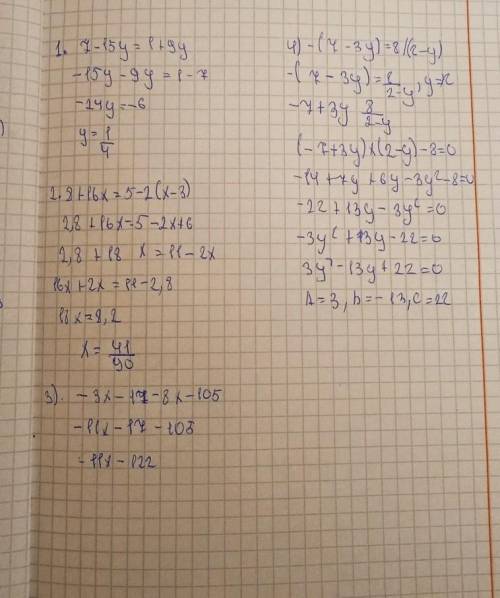 1. 7-15y=1+9y
-15y-9y=1-7
-24y=-6
y=1/4
2.8+16x=5-2(x-3)
2,8+16x=5-2x+6
2,8+18 x=11-2x
16x+2x=11-2,8
18x=8,2
x=41/90
3). -3x-17-8x-105
-11x-17-105
-11x-122
4)-(7-3y)=8/(2-y)
-(7-3y)=8/2-y,
-7+3y 8/2-y
(-7+3y)x(2-y)-8=0
-14+7y+6y-3y²-8=0
-22+13y-3y²=0
-3y²+13y-22=0
3y²-13y+22=0
A=3, b=-13, c=22